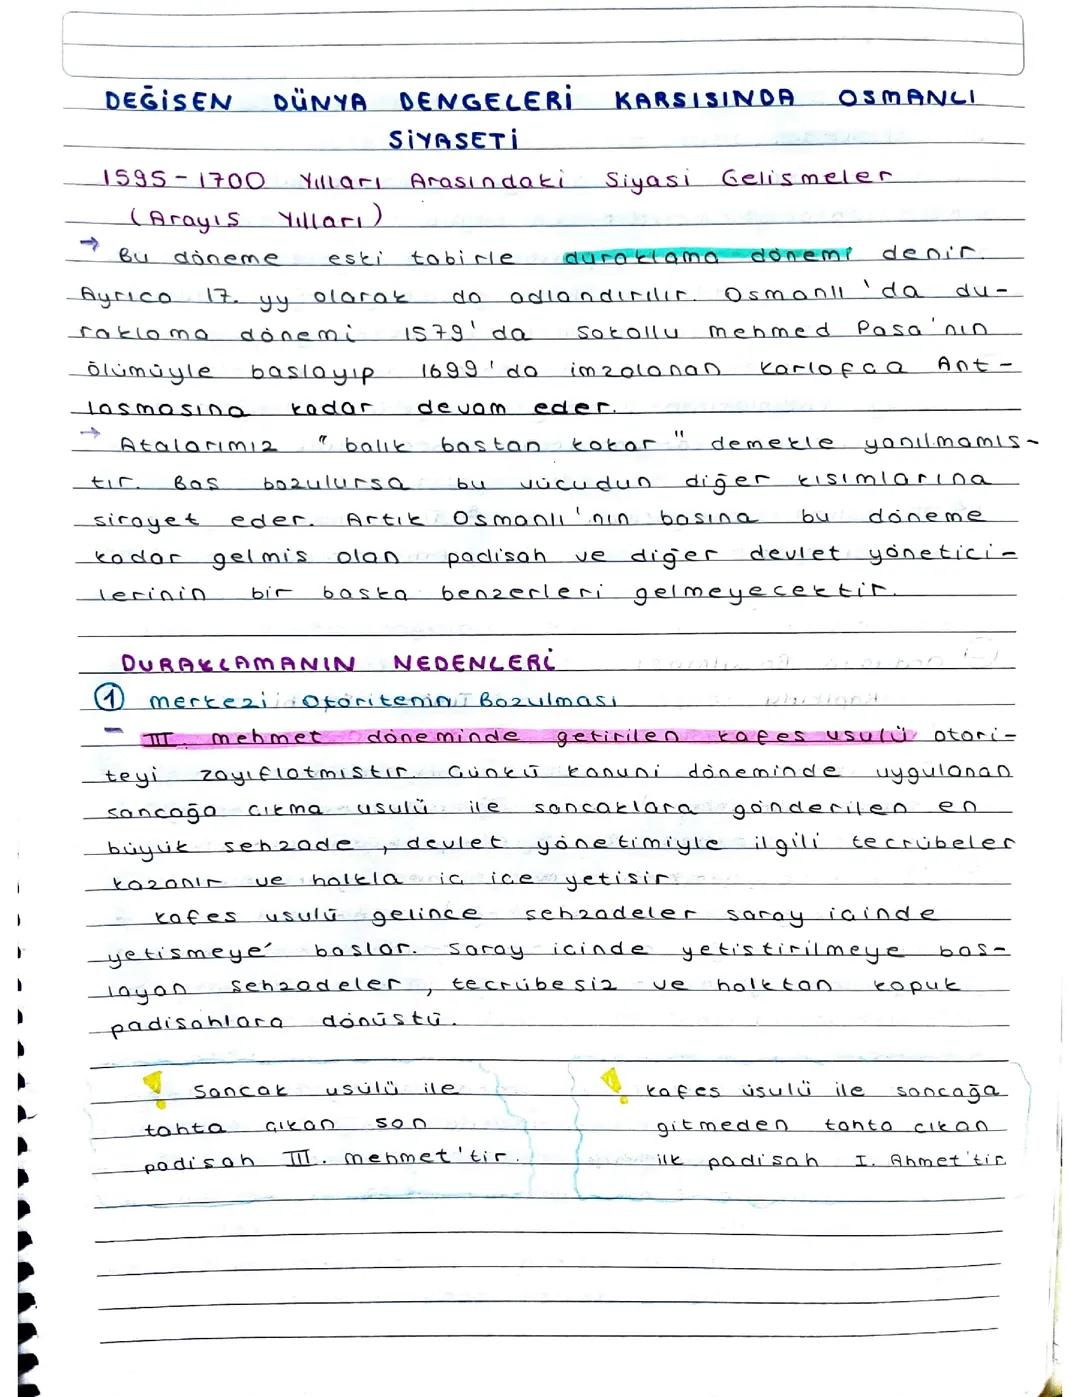 DEĞİSEN DÜNYA DENGELERİ KARSISINDA OSMANLI
SİYASETİ
1595-1700 Yılları Arasındaki Siyasi Gelismeler
(Arayıs Yılları)
→ Bu döneme eski tabirle duraklama dönemi denir.
Ayrıca 17. yy olarak da adlandırılır. Osmanlı'da du-
raklama dönemi 1579'da Sokollu mehmed Pasa'nın
ölümüyle baslayıp 1699'da imzalanan Karlofca Ant-
lasmasına kadar devam eder.
→ Atalarımız "balık bastan kokar" demekle yanılmamıs-
tır. Bas bozulursa bu vücudun diğer kısımlarına
sirayet eder. Artık Osmanlı'nın basına bu döneme
kadar gelmis olan padisah ve diğer devlet yönetici-
lerinin bir baska benzerleri gelmeyecektir.
DURAKLAMANIN NEDENLERİ
① merkezi Otoritenin Bozulması
- III. mehmet döneminde getirilen kafes usulü otori-
teyi zayıflatmıstır. Cünkü kanuni döneminde uygulanan
sancağa cıkma usulü ile sancaklara gönderilen en
büyük sehzade, devlet yönetimiyle ilgili tecrübeler
kazanır ve halkla ic ice yetisir.
kafes usulü gelince sehzadeler saray icinde
yetismeye baslar. Saray icinde yetistirilmeye bas-
layan sehzadeler, tecrübesiz ve halktan kopuk
padisahlara dönüstü.
! Sancak usülü ile
tahta cıkan son
padisah III. mehmet'tir.
! kafes üsulü ile sancağa
gitmeden tahta cıkan
ilk padisah I. Ahmet'tir